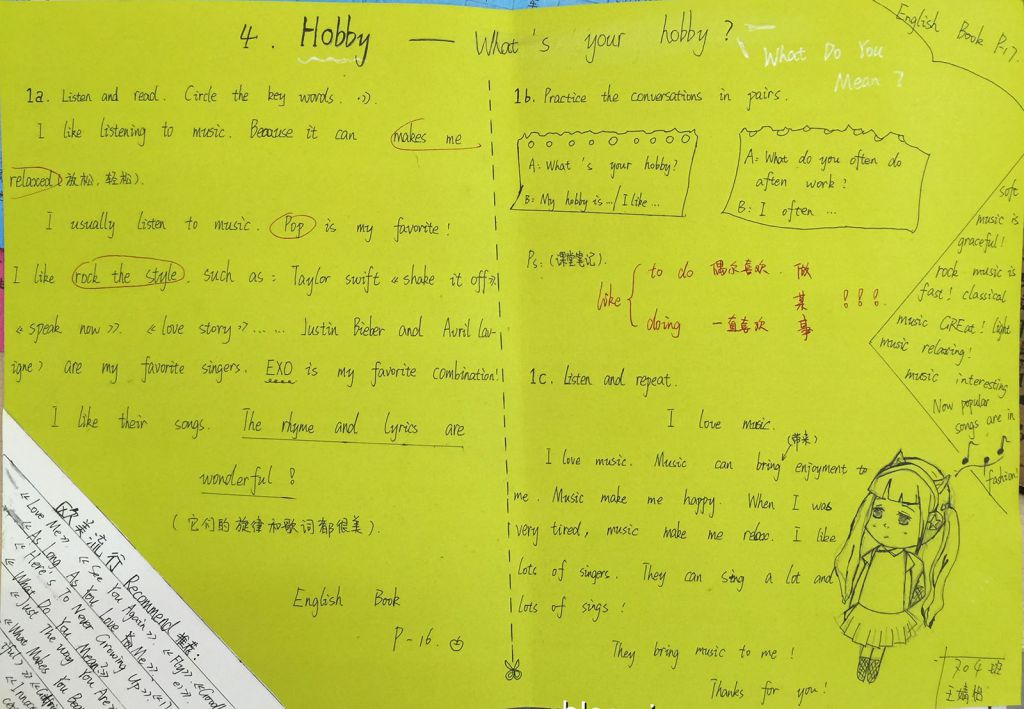 4. Hobby — What's your hobby?
What Do You
Mean?
English Book P-17.
1a. Listen and read. Circle the key words.
I like listening to music. Because it can makes me
relaxed (放松, 轻松).
I usually listen to music. Pop is my favorite!
I like rock the style. such as: Taylor swift 《shake it off》
《speak now》. 《love story》...... Justin Bieber and Avril (av-
igne) are my favorite singers. EXO is my favorite combination!
I like their songs. The rhyme and lyrics are
wonderful!
(它们的旋律和歌词都很美).
English Book
P-16.
欧美流行 Recommend
《Love Me》. 《See You Again》. 《Fly》.
《As Long As You Love Me》.
《Here's To Never Growing Up》.
《What Do You Mean?》
《Just The Way You Are》
《What Makes You
1b. Practice the conversations in pairs.
A: What's your hobby?
B: My hobby is .../ I like ...
A: What do you often do
aften work?
B: I often ...
Ps: (课堂笔记).
like
to do 偶尔喜欢. 做
某 !!!
doing 一直喜欢 事
1c. Listen and repeat.
I love music.
(带来)
I love music. Music can bring enjoyment to
me. Music make me happy. When I was
very tired, music make me relax. I like
lots of singers. They can sing a lot and
lots of sings!
They bring music to me!
Thanks for you!
soft
music is
graceful!
rock music is
fast! classical
music GREat! light
music relaxing!
music interesting
Now popular
songs are in
fashion!
704班